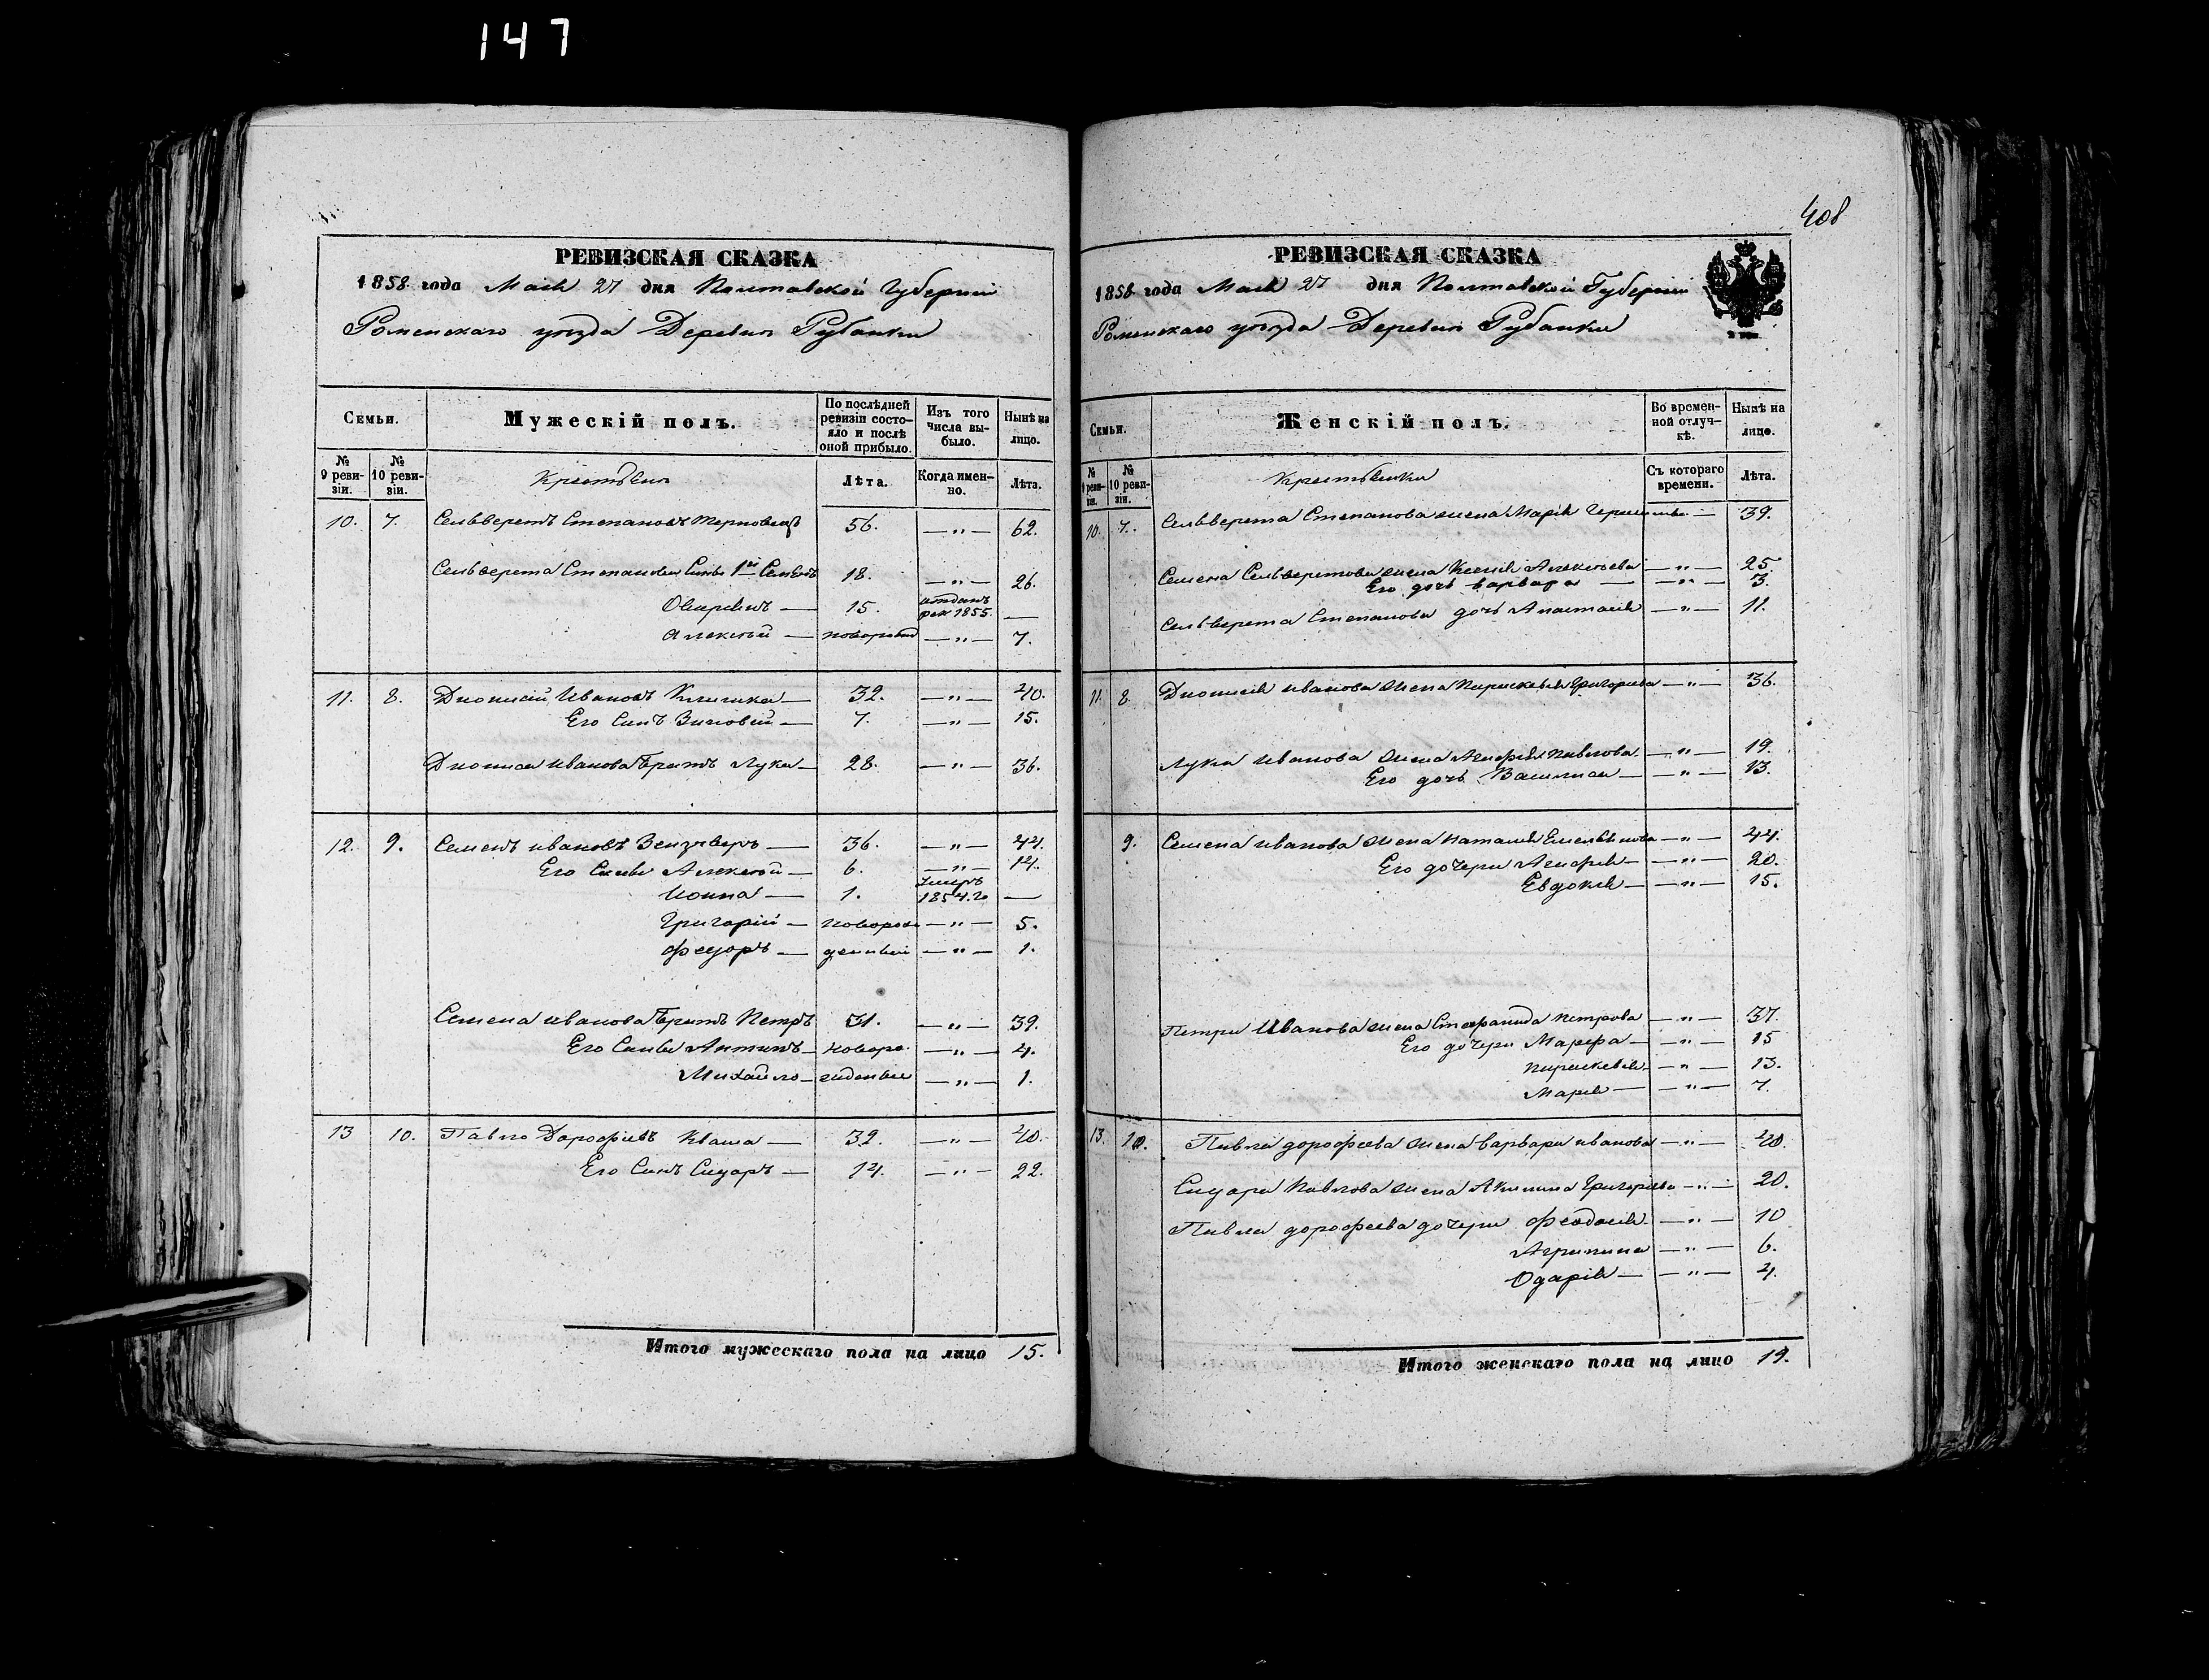 147
408
РЕВИЗСКАЯ СКАЗКА
1858 года Мая 27 дня Полтавской Губерніи
Роменскаго уѣзда Деревни Рубанки
Семьи.
Мужескій полъ.
По послѣдней ревизіи состояло и послѣ оной прибыло.
Изъ того числа выбыло.
Нынѣ на лицо.
№ 9 ревизіи.
№ 10 ревизіи.
Крестьяне
Лѣта.
Когда именно.
Лѣта.
10. 7. Сельверстъ Степановъ 56. — " — 62.
Сельверста Степанова Сыны 1й Семенъ 18. — " — 26.
15. отданъ рек 1855. —
Алексѣй — новорожд — " — 7.
11. 8. Дионисий Ивановъ 32. — " — 40.
Его Сынъ Зиновий — 7. — " — 15.
Дионисия Иванова Братъ Лука — 28. — " — 36.
12. 9. Семенъ Ивановъ 36. — " — 44.
Его Сыны Алексѣй — 6. — " — 14.
Иоина — 1. Умеръ 1854. го —
Григорій — новорож — " — 5.
Федоръ — денный — " — 1.
Семена Иванова Братъ Петръ 31. — " — 39.
Его Сыны Антипъ — новоро — " — 4.
Михайло — жденные — " — 1.
13 10. Павло Дорофѣевъ Кваша — 32. — " — 40.
Его Сынъ Сидоръ — 14. — " — 22.
Итого мужескаго пола на лицо 15.
РЕВИЗСКАЯ СКАЗКА
1858 года Мая 27 дня Полтавской Губерніи
Роменскаго уѣзда Деревни Рубанки
Семьи.
Женскій полъ.
Во временной отлучкѣ.
Нынѣ на лицо.
№ 9 ревизіи.
№ 10 ревизіи.
Крестьянки
Съ котораго времени.
Лѣта.
10. 7. Сельверста Степанова жена Марія — 39.
Семена Сельверстова жена Ксенія Алексѣева — " — 25.
Его дочь Варвара — — " — 3.
Сельверста Степанова дочь Анастасія — " — 11.
11. 8. Дионисія Иванова жена Параскевія Григорьева — " — 36.
Лука Иванова жена Агафія Павлова — " — 19.
Его дочь Василиса — — " — 13.
9. Семена Иванова жена Наталія Емельянова — " — 44.
Его дочери Агафія — — " — 20.
Евдокія — — " — 15.
Петра Иванова жена Стефанида Петрова — " — 37.
Его дочери Марфа — — " — 15
Параскевія — " — 13.
Марія — — " — 7.
13. 10. Павла дорофеева жена Варвара Иванова — " — 40.
Сидора Павлова жена Акилина Григорьева — " — 20.
Павла дорофеева дочери Феодосія — " — 10
Агрипина — " — 6.
Одарія — — " — 4.
Итого женскаго пола на лицо 19.